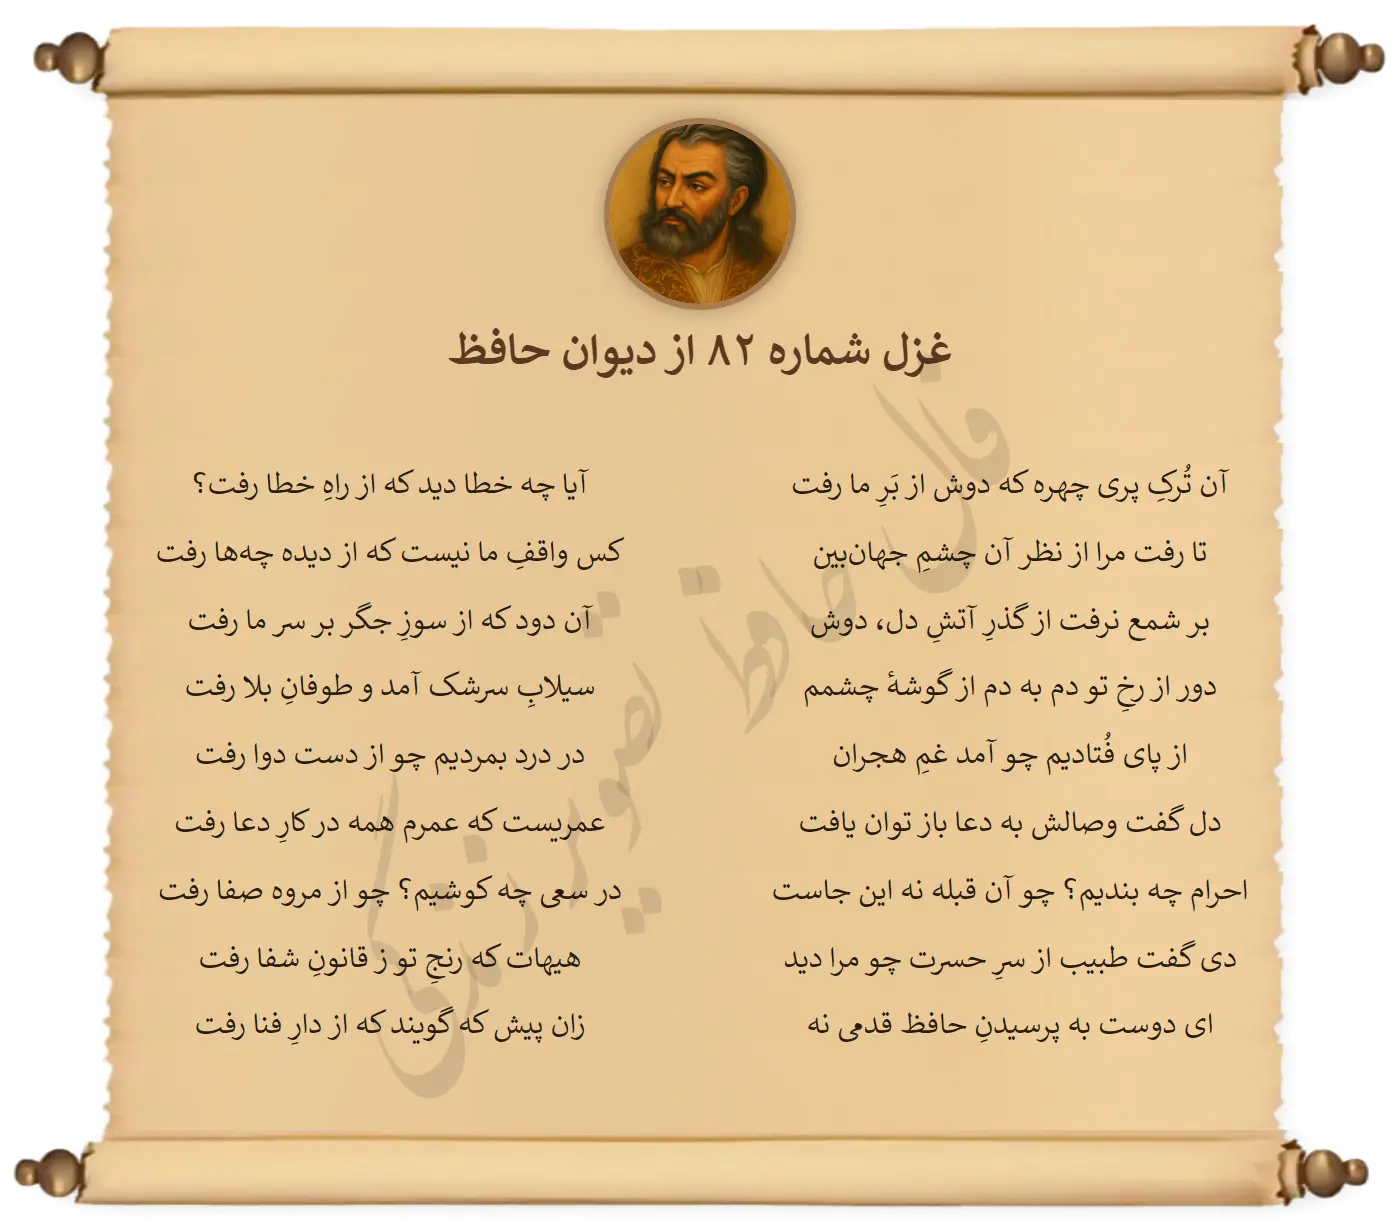 غزل شماره ۸۲ از دیوان حافظ
آن تُرکِ پری چهره که دوش از بَرِ ما رفت
آیا چه خطا دید که از راهِ خطا رفت؟
تا رفت مرا از نظر آن چشمِ جهان‌بین
کس واقفِ ما نیست که از دیده چه‌ها رفت
بر شمع نرفت از گذرِ آتشِ دل، دوش
آن دود که از سوزِ جگر بر سر ما رفت
دور از رخِ تو دم به دم از گوشهٔ چشمم
سیلابِ سرشک آمد و طوفانِ بلا رفت
از پای فُتادیم چو آمد غمِ هجران
در درد بمردیم چو از دست دوا رفت
دل گفت وصالش به دعا باز توان یافت
عمریست که عمرم همه در کارِ دعا رفت
احرام چه بندیم؟ چو آن قبله نه این جاست
در سعی چه کوشیم؟ چو از مروه صفا رفت
دی گفت طبیب از سرِ حسرت چو مرا دید
هیهات که رنجِ تو ز قانونِ شفا رفت
ای دوست به پرسیدنِ حافظ قدمی نه
زان پیش که گویند که از دارِ فنا رفت
فال حافظ تصویر زندگی